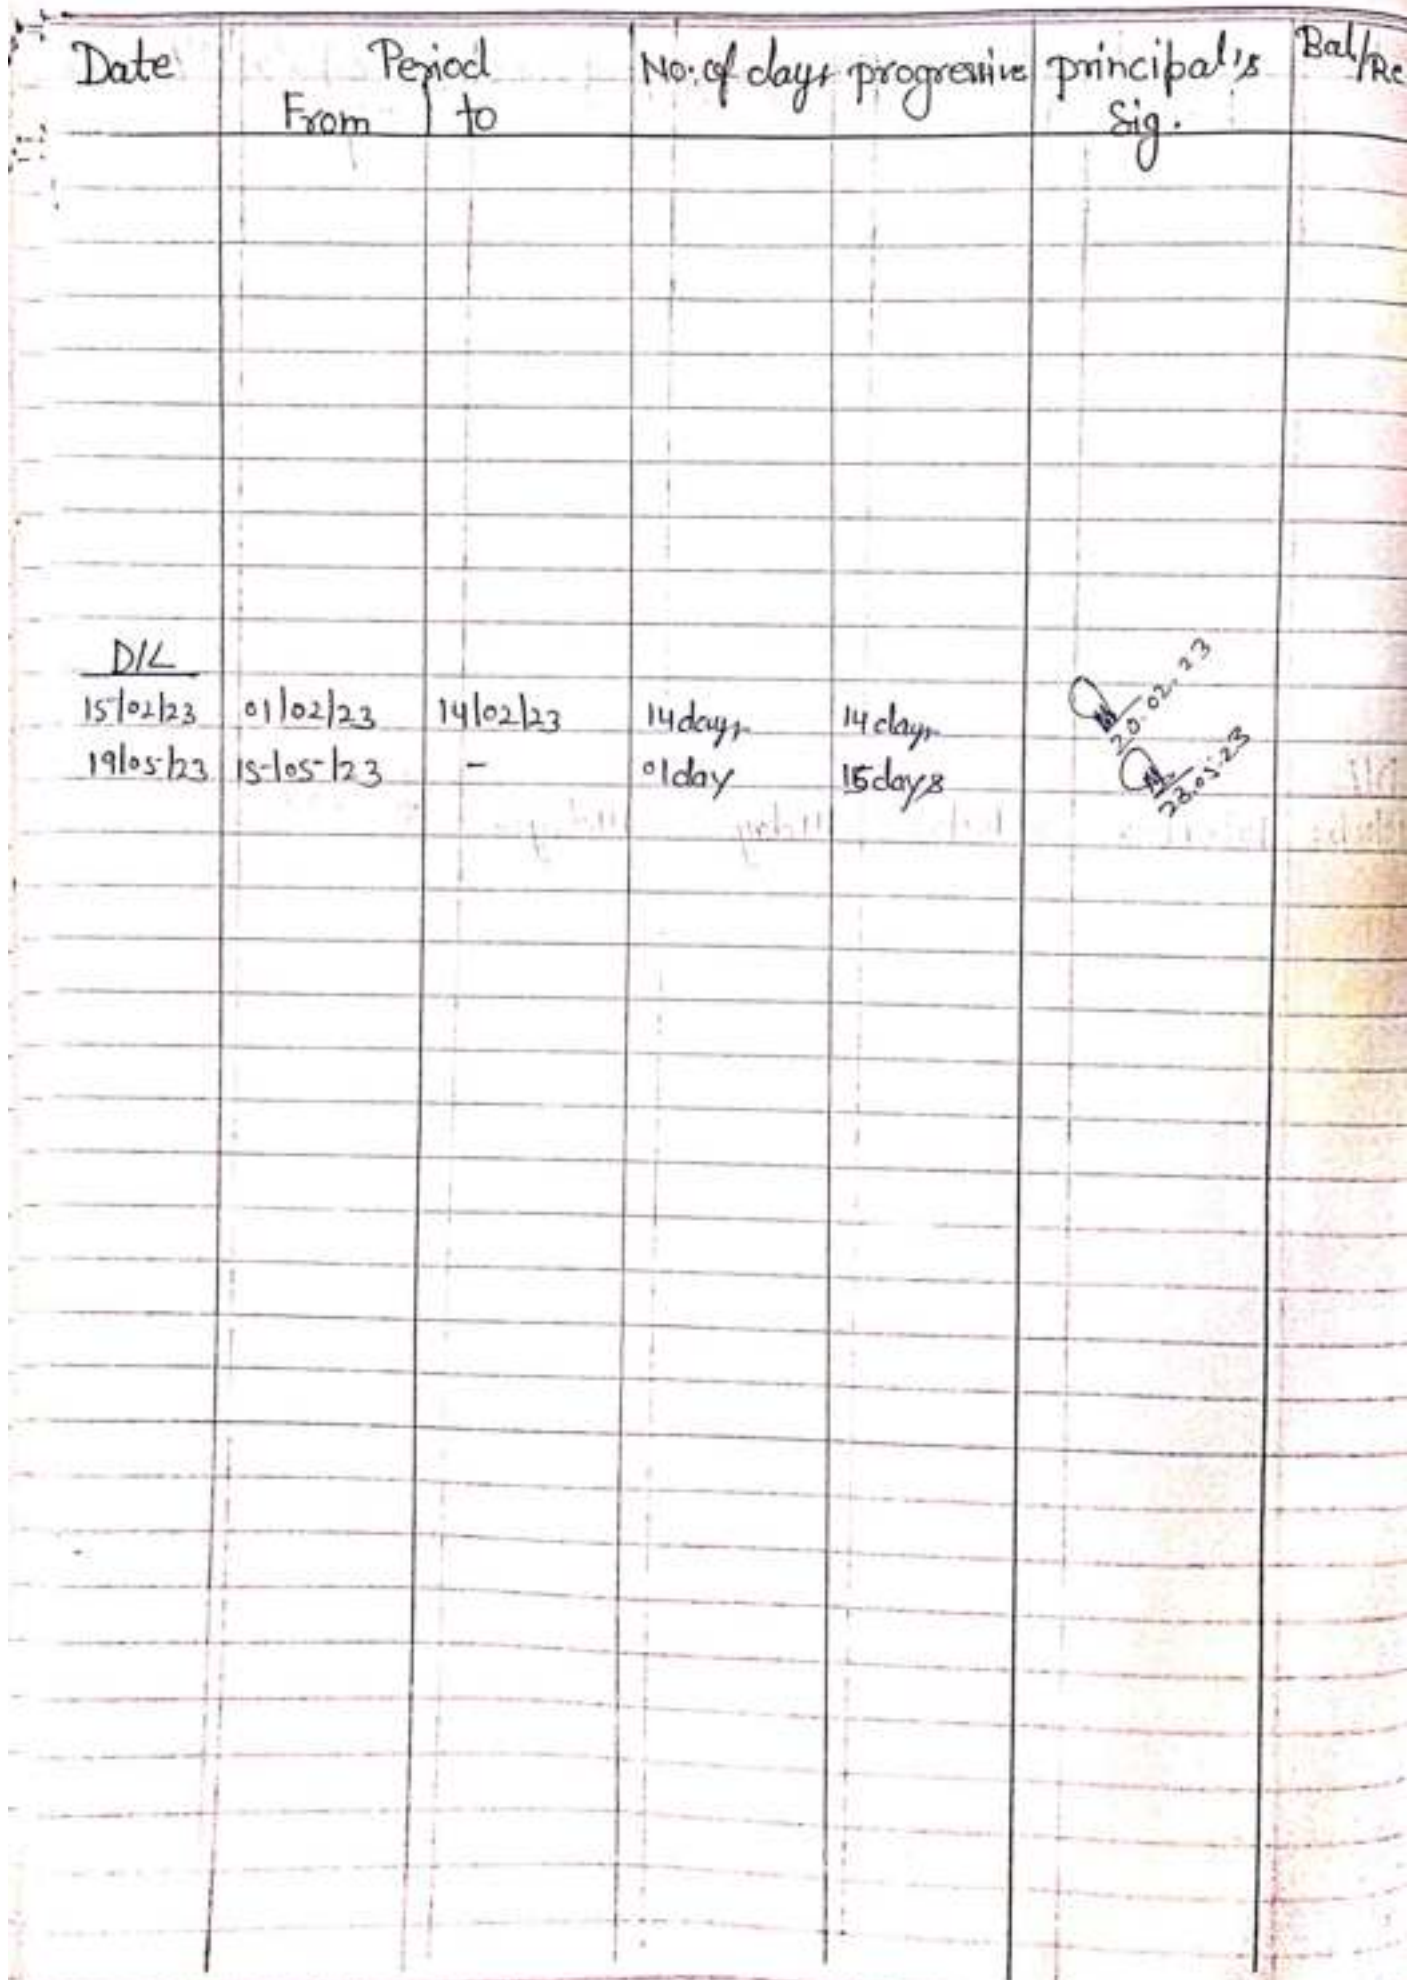 Date Period No. of days progressive principal's Bal/Re
From to Sig.
D/L
15/02/23 01/02/23 14/02/23 14 days 14 days 20.02.23
19/05/23 15/05/23 - 01 day 15 days 23.05.23